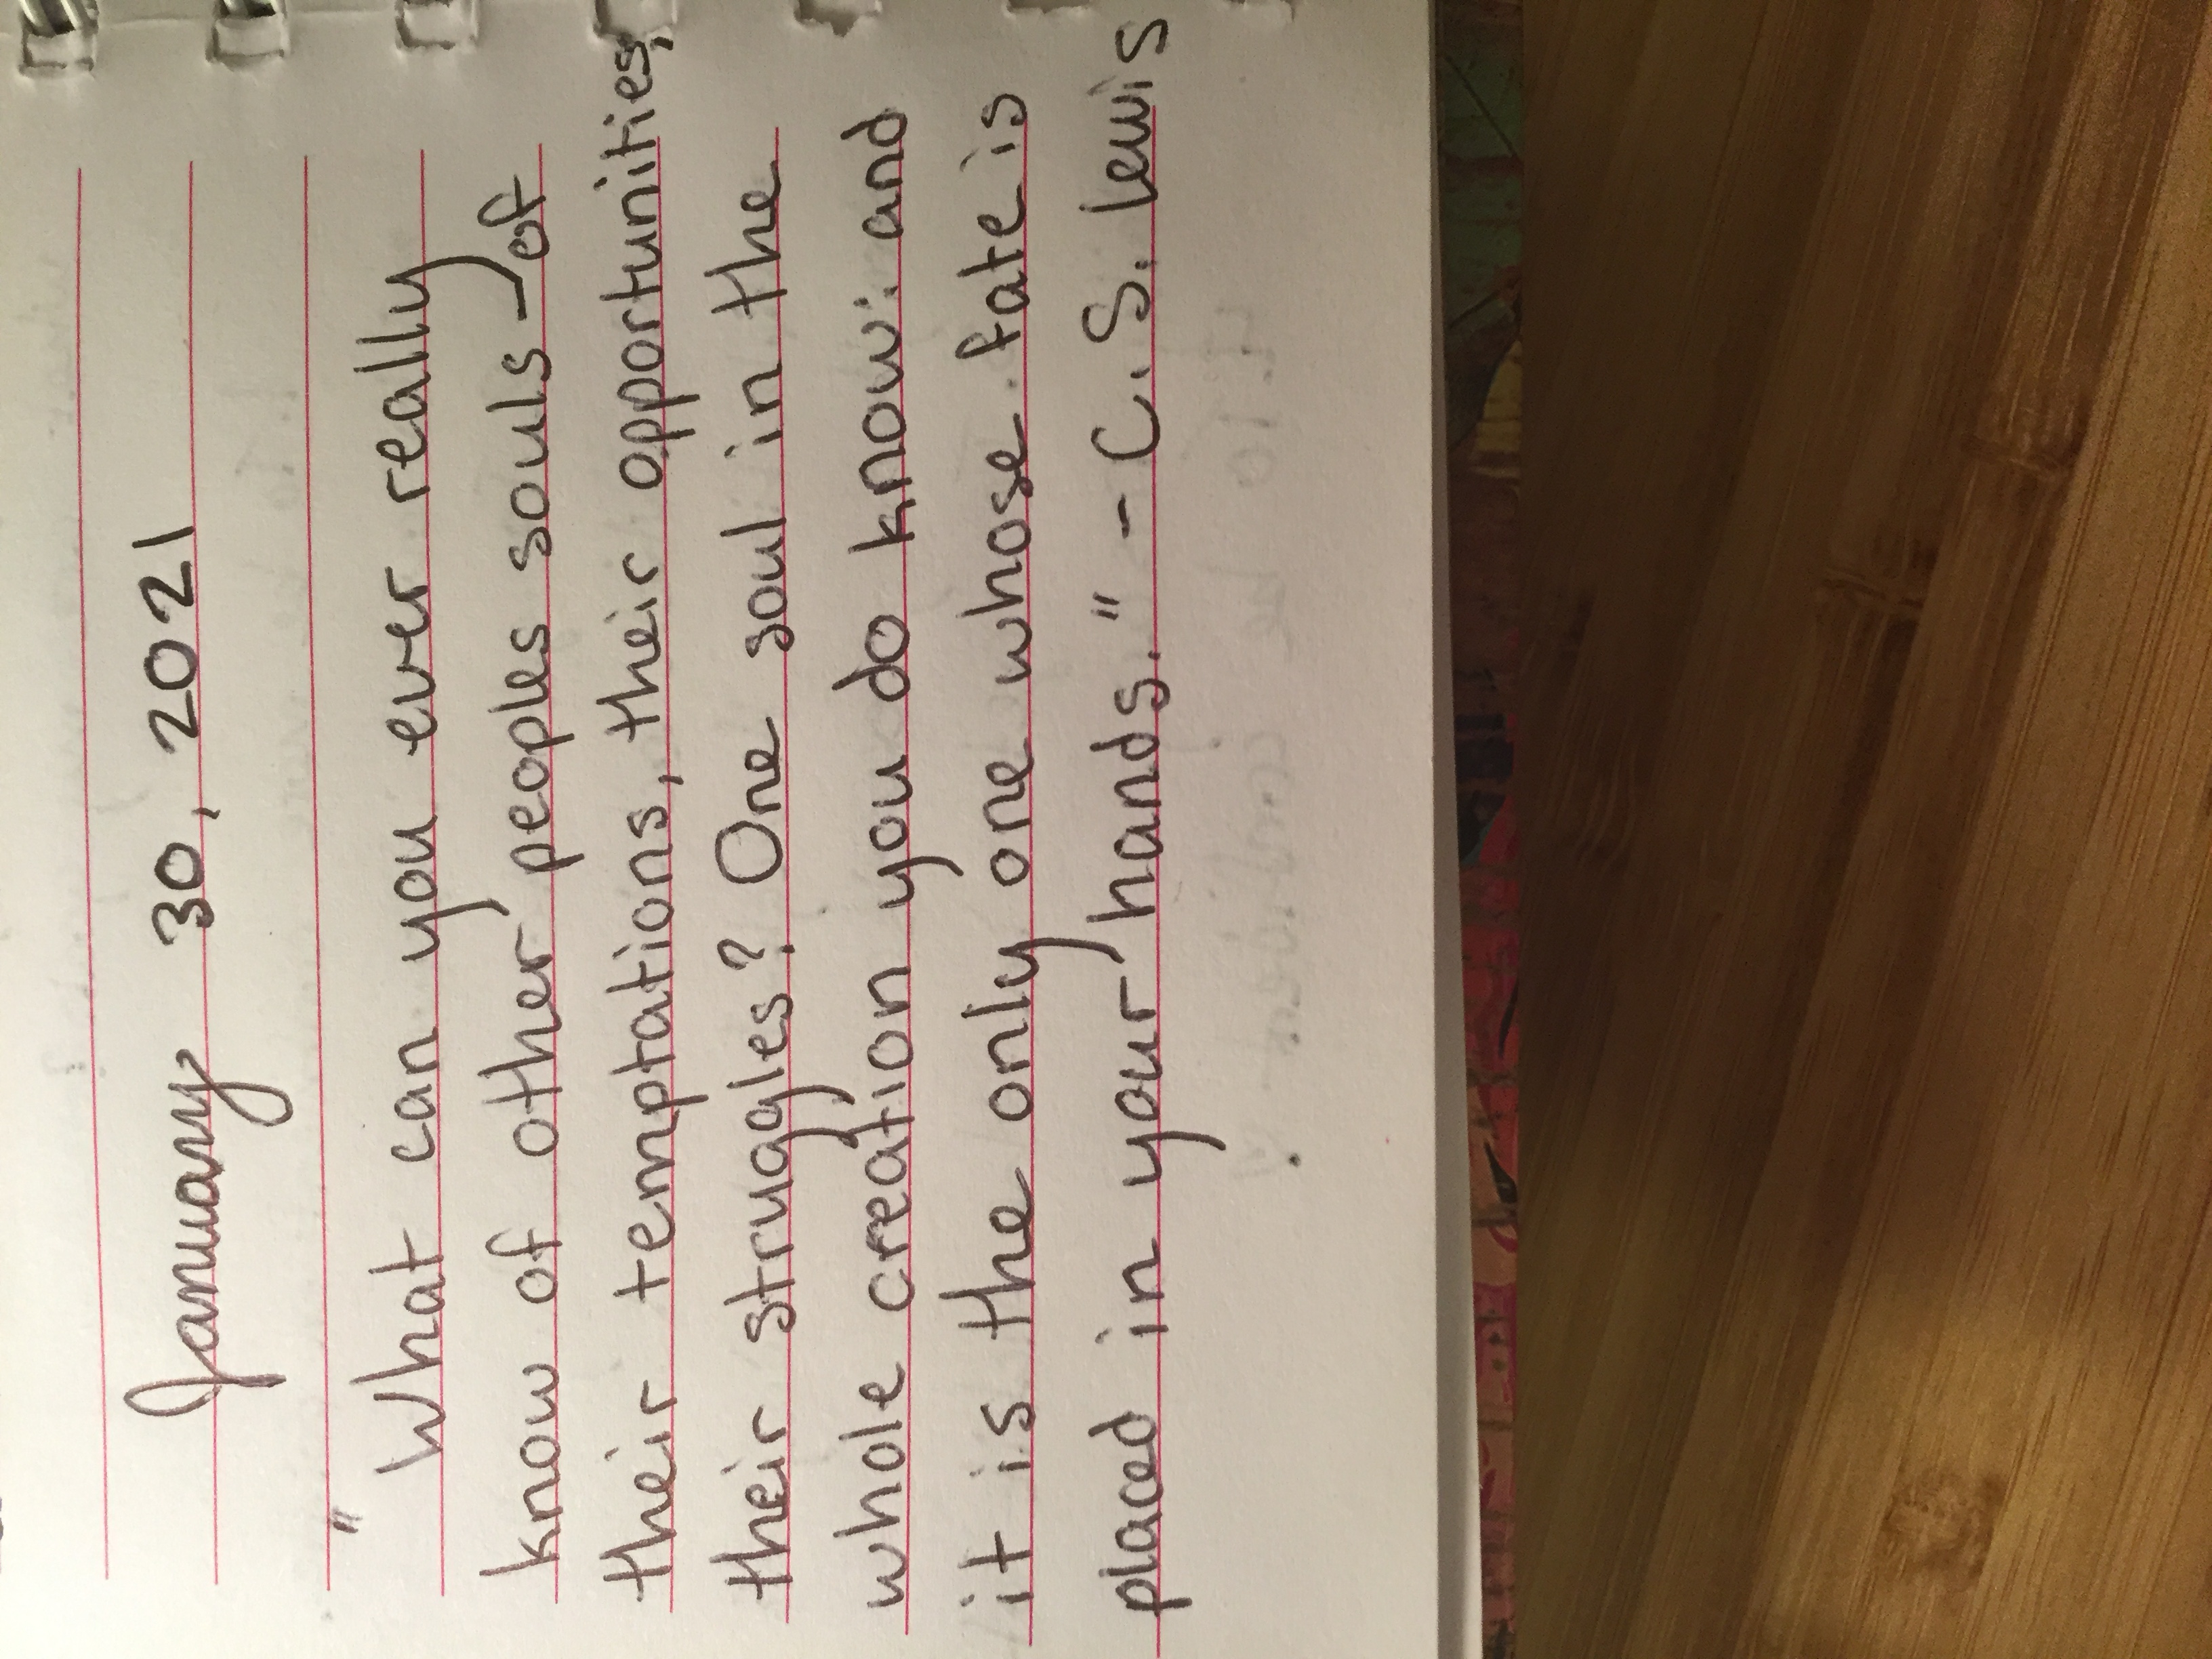 January 30, 2021
"What can you ever really
know of other peoples souls - of
their temptations, their opportunities,
their struggles? One soul in the
whole creation you do know: and
it is the only one whose fate is
placed in your hands." - C.S. Lewis